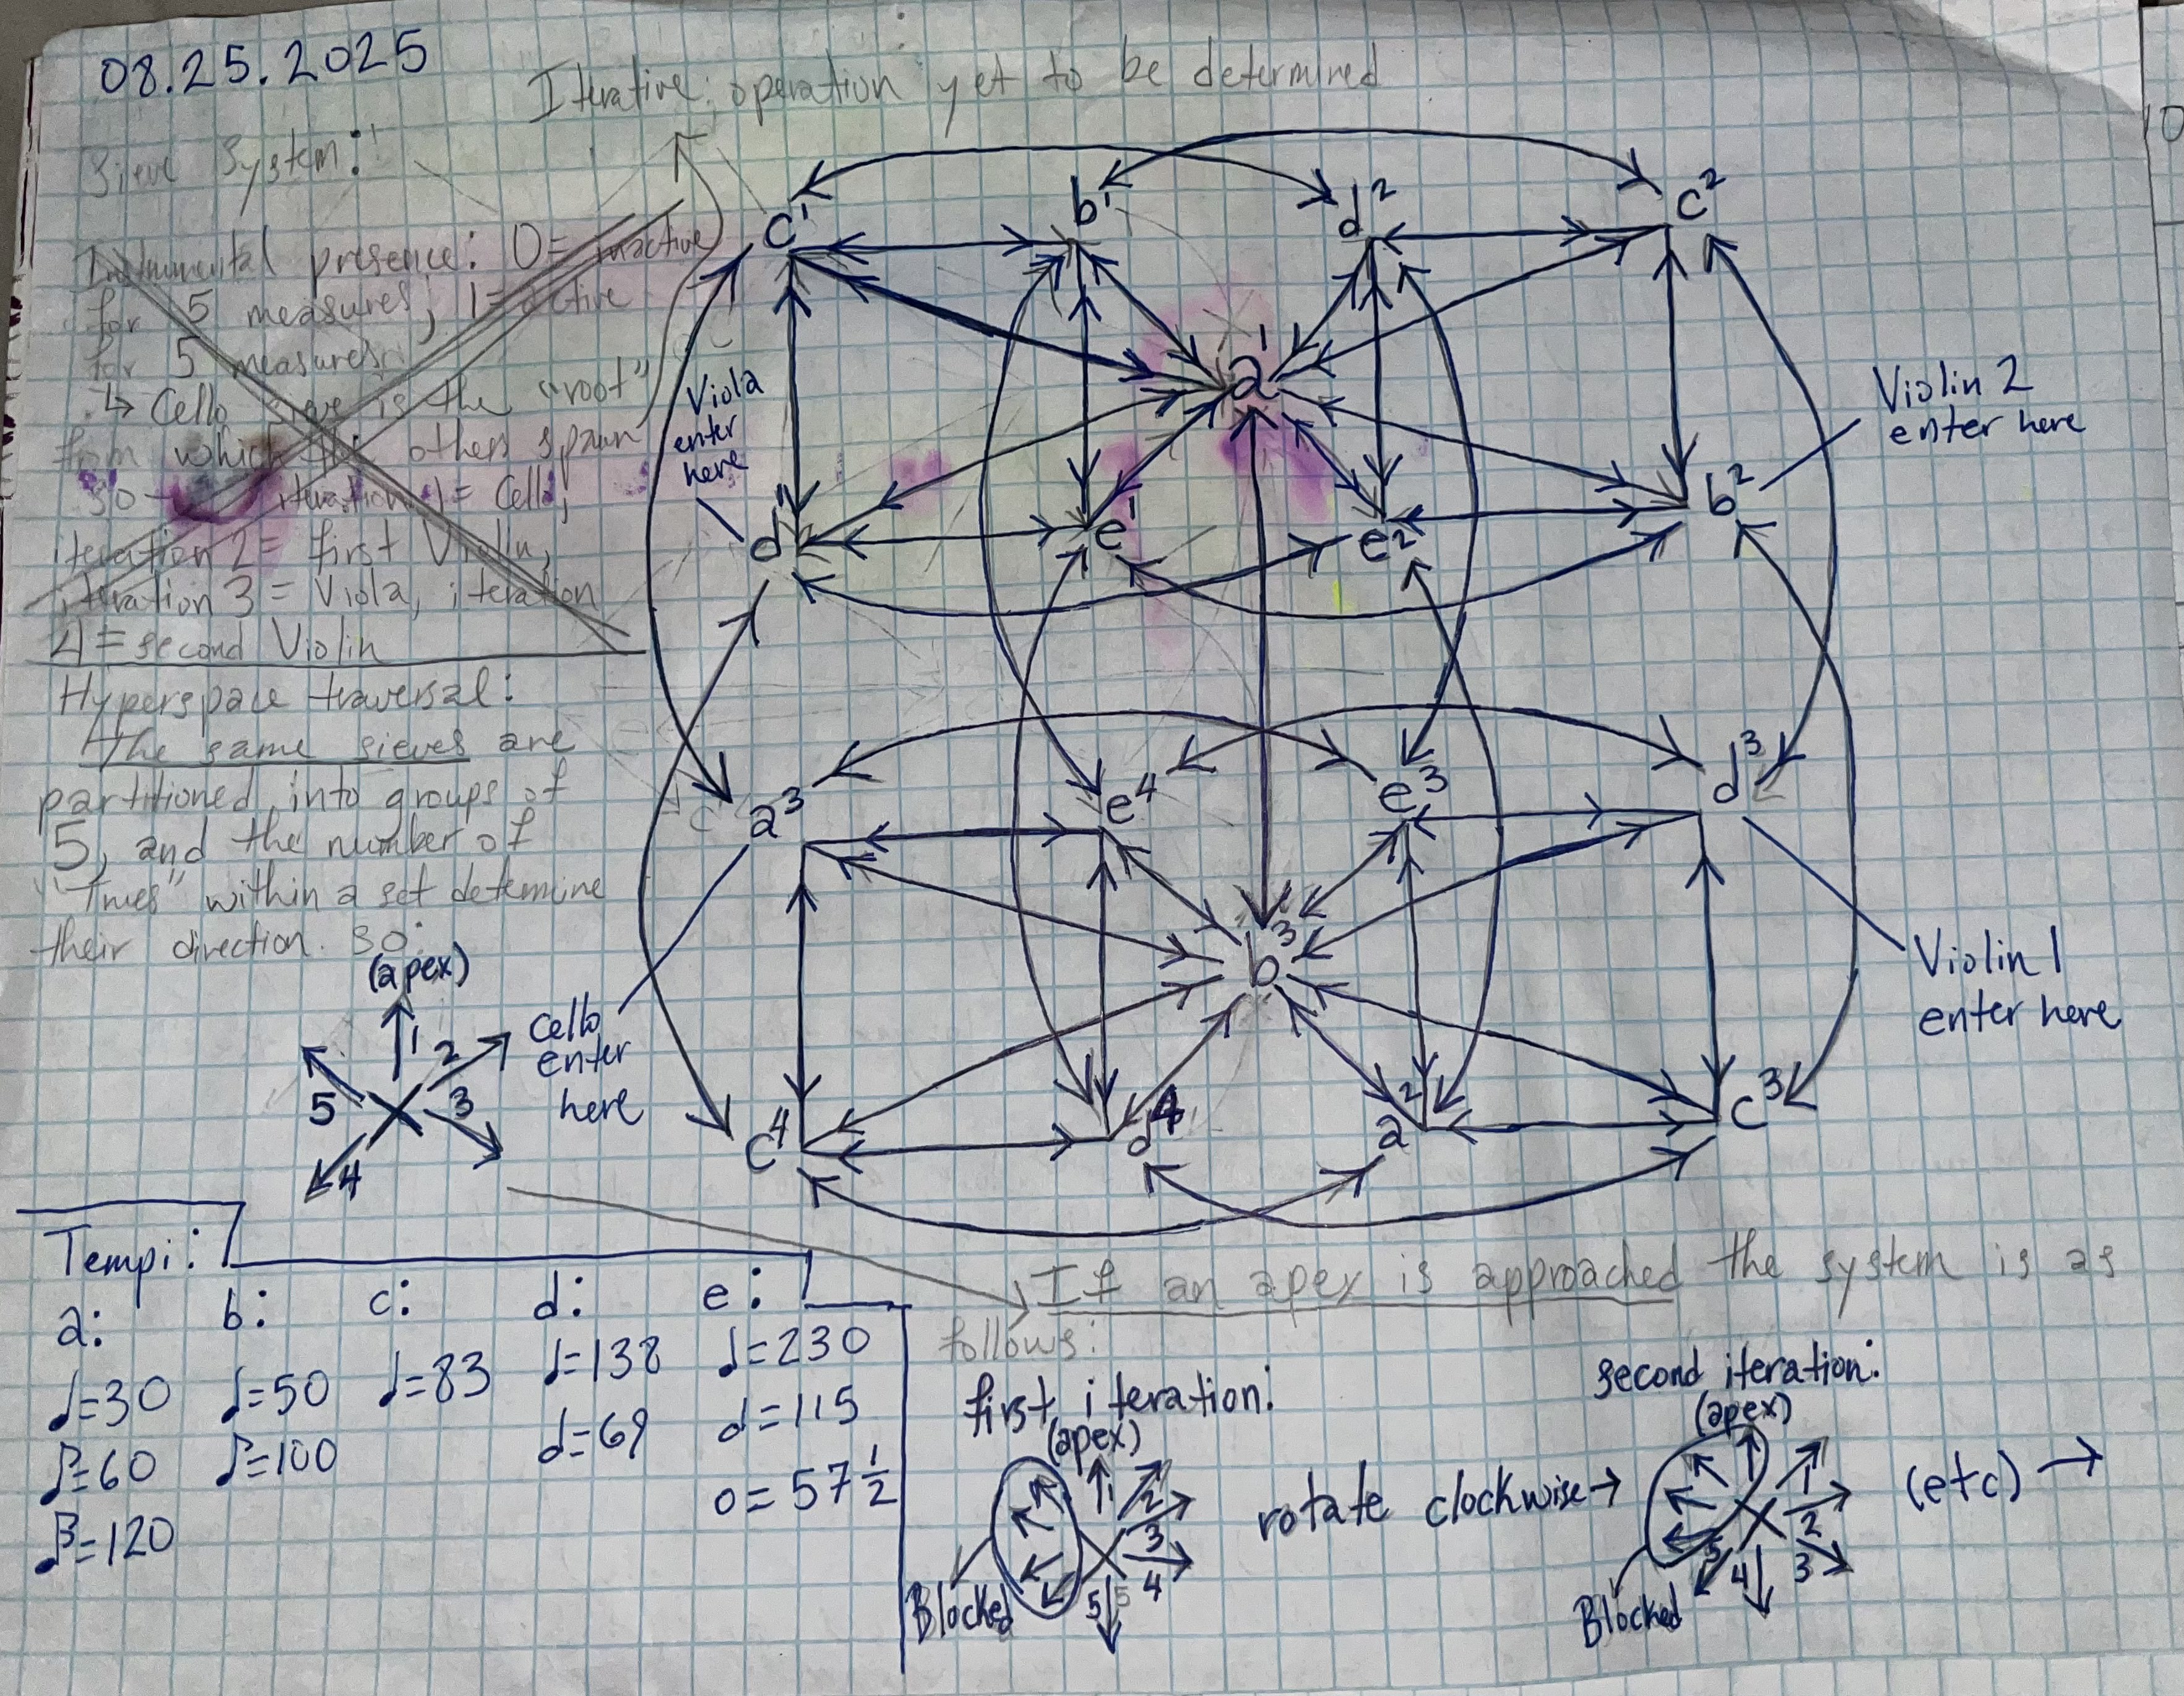 08.25.2025
Iterative; operation yet to be determined
Sieve System:
Instrumental presence: 0= inactive
for 5 measures; 1= active
for 5 measures.
↳ Cello sieve is the "root"
from which the others spawn
so iteration 1= Cello,
iteration 2= first Violin,
iteration 3= Viola, iteration
4= second Violin
Hyperspace traversal:
The same sieves are
partitioned into groups of
5, and the number of
"Trues" within a set determine
their direction. So:
(apex)
1
2
3
4
5
c¹ b¹ d² c²
a¹
Viola
enter
here
Violin 2
enter here
d¹ e¹ e² b²
a³ e⁴ e³ d³
b³
Cello
enter
here
Violin 1
enter here
c⁴ d⁴ a² c³
Tempi:
a: b: c: d: e:
♩=30 ♩=50 ♩=83 ♩=138 ♩=230
♪=60 ♪=100 𝅗𝅥=69 𝅗𝅥=115
𝅘𝅥𝅯=120 𝅝=57 ½
If an apex is approached the system is as
follows:
first iteration:
(apex)
1
2
3
4
5
Blocked
rotate clockwise→
second iteration:
(apex)
1
2
3
4
5
Blocked
(etc) →